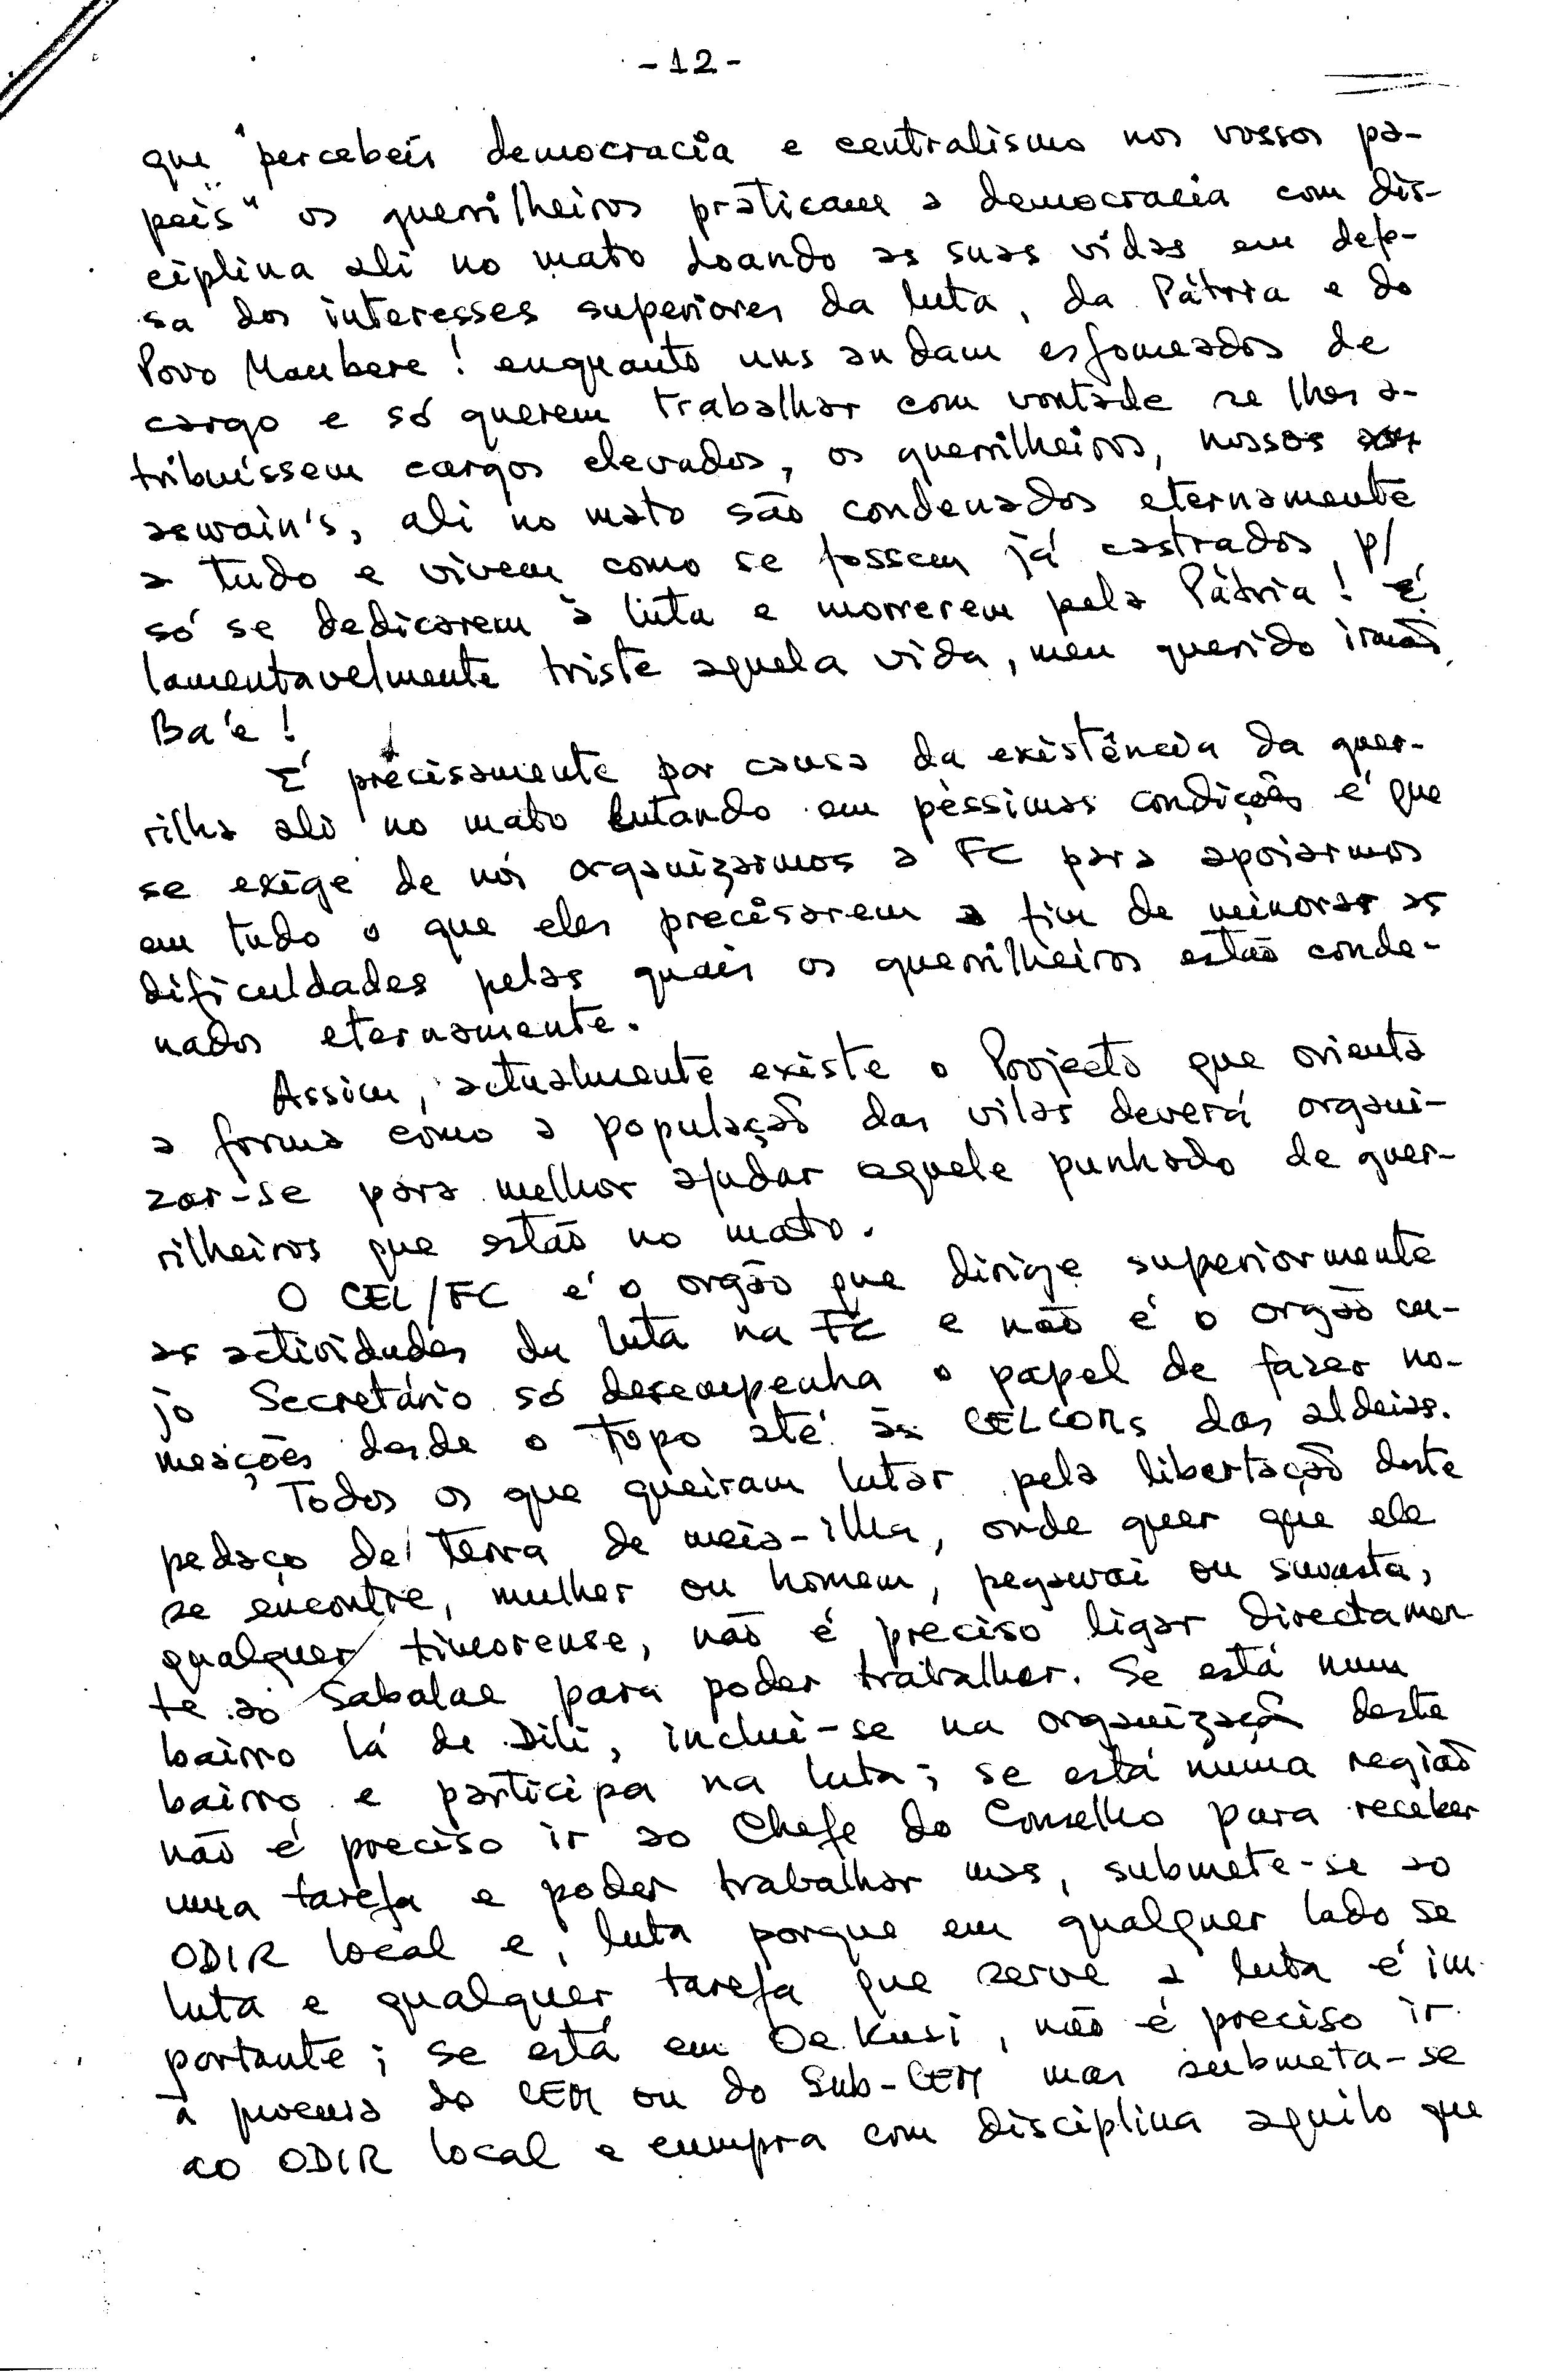 -12-
que "percebeis democracia e centralismo nos vossos pa-
peis" os guerrilheiros praticam a democracia com dis-
ciplina ali no mato doando as suas vidas em defe-
sa dos interesses superiores da luta, da Pátria e do
Povo Maubere! enquanto uns andam esfomeados de
cargo e só querem trabalhar com vontade se lhes a-
tribuíssem cargos elevados, os guerrilheiros, nossos
aswain's, ali no mato são condenados eternamente
a tudo e vivem como se fossem já castrados p/
só se dedicarem à luta e morrerem pela Pátria! É
lamentavelmente triste aquela vida, meu querido irmão
Ba'e!
É precisamente por causa da existência da guer-
rilha ali no mato lutando em péssimas condições é que
se exige de nós organizarmos a FC para apoiarmos
em tudo o que eles precisarem a fim de minorar as
dificuldades pelas quais os guerrilheiros estão conde-
nados eternamente.
Assim, actualmente existe o Projecto que orienta
a forma como a população das vilas deverá organi-
zar-se para melhor ajudar aquele punhado de guer-
rilheiros que estão no mato.
O CEL/FC é o orgão que dirige superiormente
as actividades da luta na FC e não é o orgão cu-
jo Secretário só desempenha o papel de fazer no-
meações desde o topo até às CELCOMs das aldeias.
Todos os que queiram lutar pela libertação deste
pedaço de terra de meia-ilha, onde quer que ele
se encontre, mulher ou homem, pegawai ou suvasta,
qualquer timorense, não é preciso ligar directamen
te ao Sabalae para poder trabalhar. Se está num
bairro lá de Dili, inclui-se na organização deste
bairro e participa na luta; se está numa região
não é preciso ir ao Chefe do Conselho para receber
uma tarefa e poder trabalhar mas, submete-se ao
ODIR local e, luta porque em qualquer lado se
luta e qualquer tarefa que serve a luta é im
portante; se está em Oe.Kusi, não é preciso ir
à do CEM ou do Sub-CEM mas submeta-se
ao ODIR local e cumpra com disciplina aquilo que